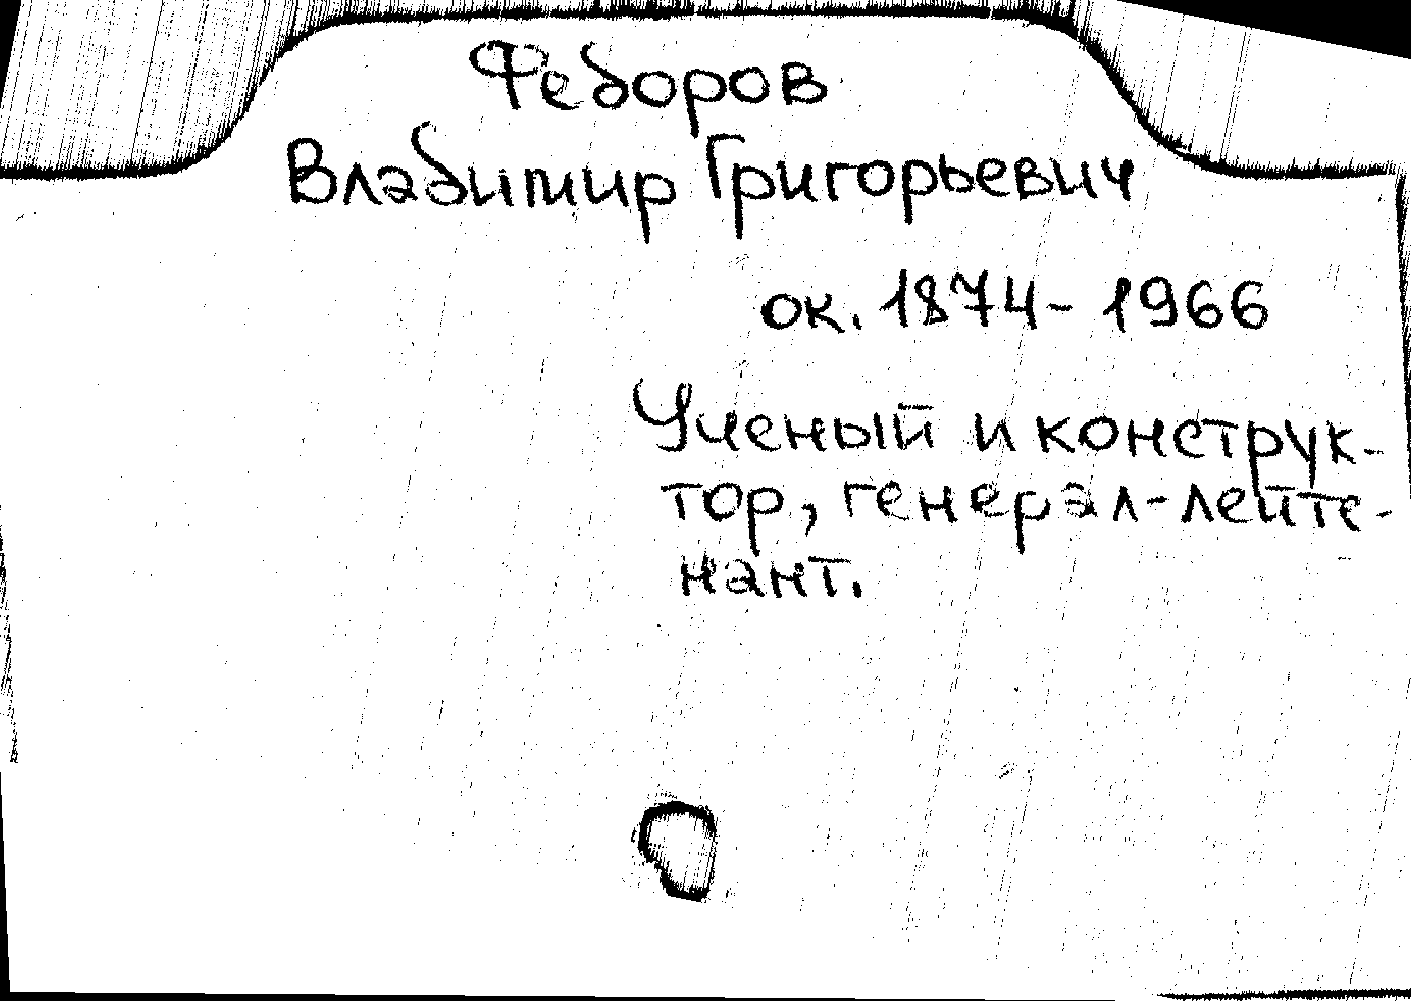 Федоров
Владимир Григорьевич
ок. 1874-1966
Ученый и конструк-
тор, генерал-лейте-
нант.